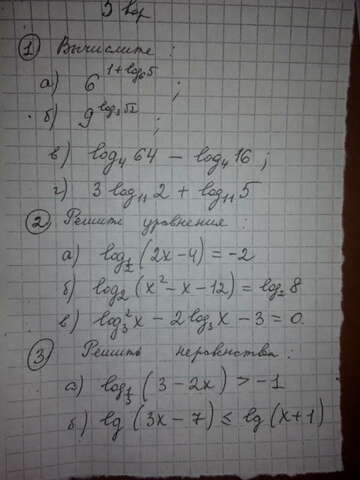 3 вар
① Вычислите:
а) 6^{1+log₆5};
б) 9^{log₃√2};
в) log₄64 − log₄16;
г) 3log₁₁2 + log₁₁5
② Решить уравнения:
а) log_{1/2}(2x−4) = −2
б) log₂(x²−x−12) = log₂8
в) log₃²x − 2log₃x − 3 = 0.
③ Решить неравенства:
а) log_{1/3}(3−2x) > −1
б) lg(3x−7) ≤ lg(x+1)